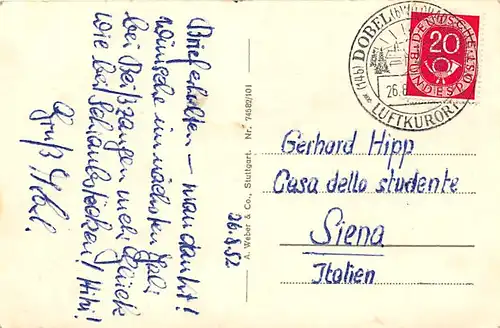 Brief erhalten – man dankt!
Wünsche im nächsten
bei Beißzangen mehr Glück
wie bei Schraubstöcken! Hihi!
Gruß
26.8.52
A. Weber & Co., Stuttgart. Nr. 74582/101
(14b) DOBEL
LUFTKURORT
26.8
DEUTSCHE BUNDESPOST
20
Gerhard Hipp
Casa dello studente
Siena
Italien